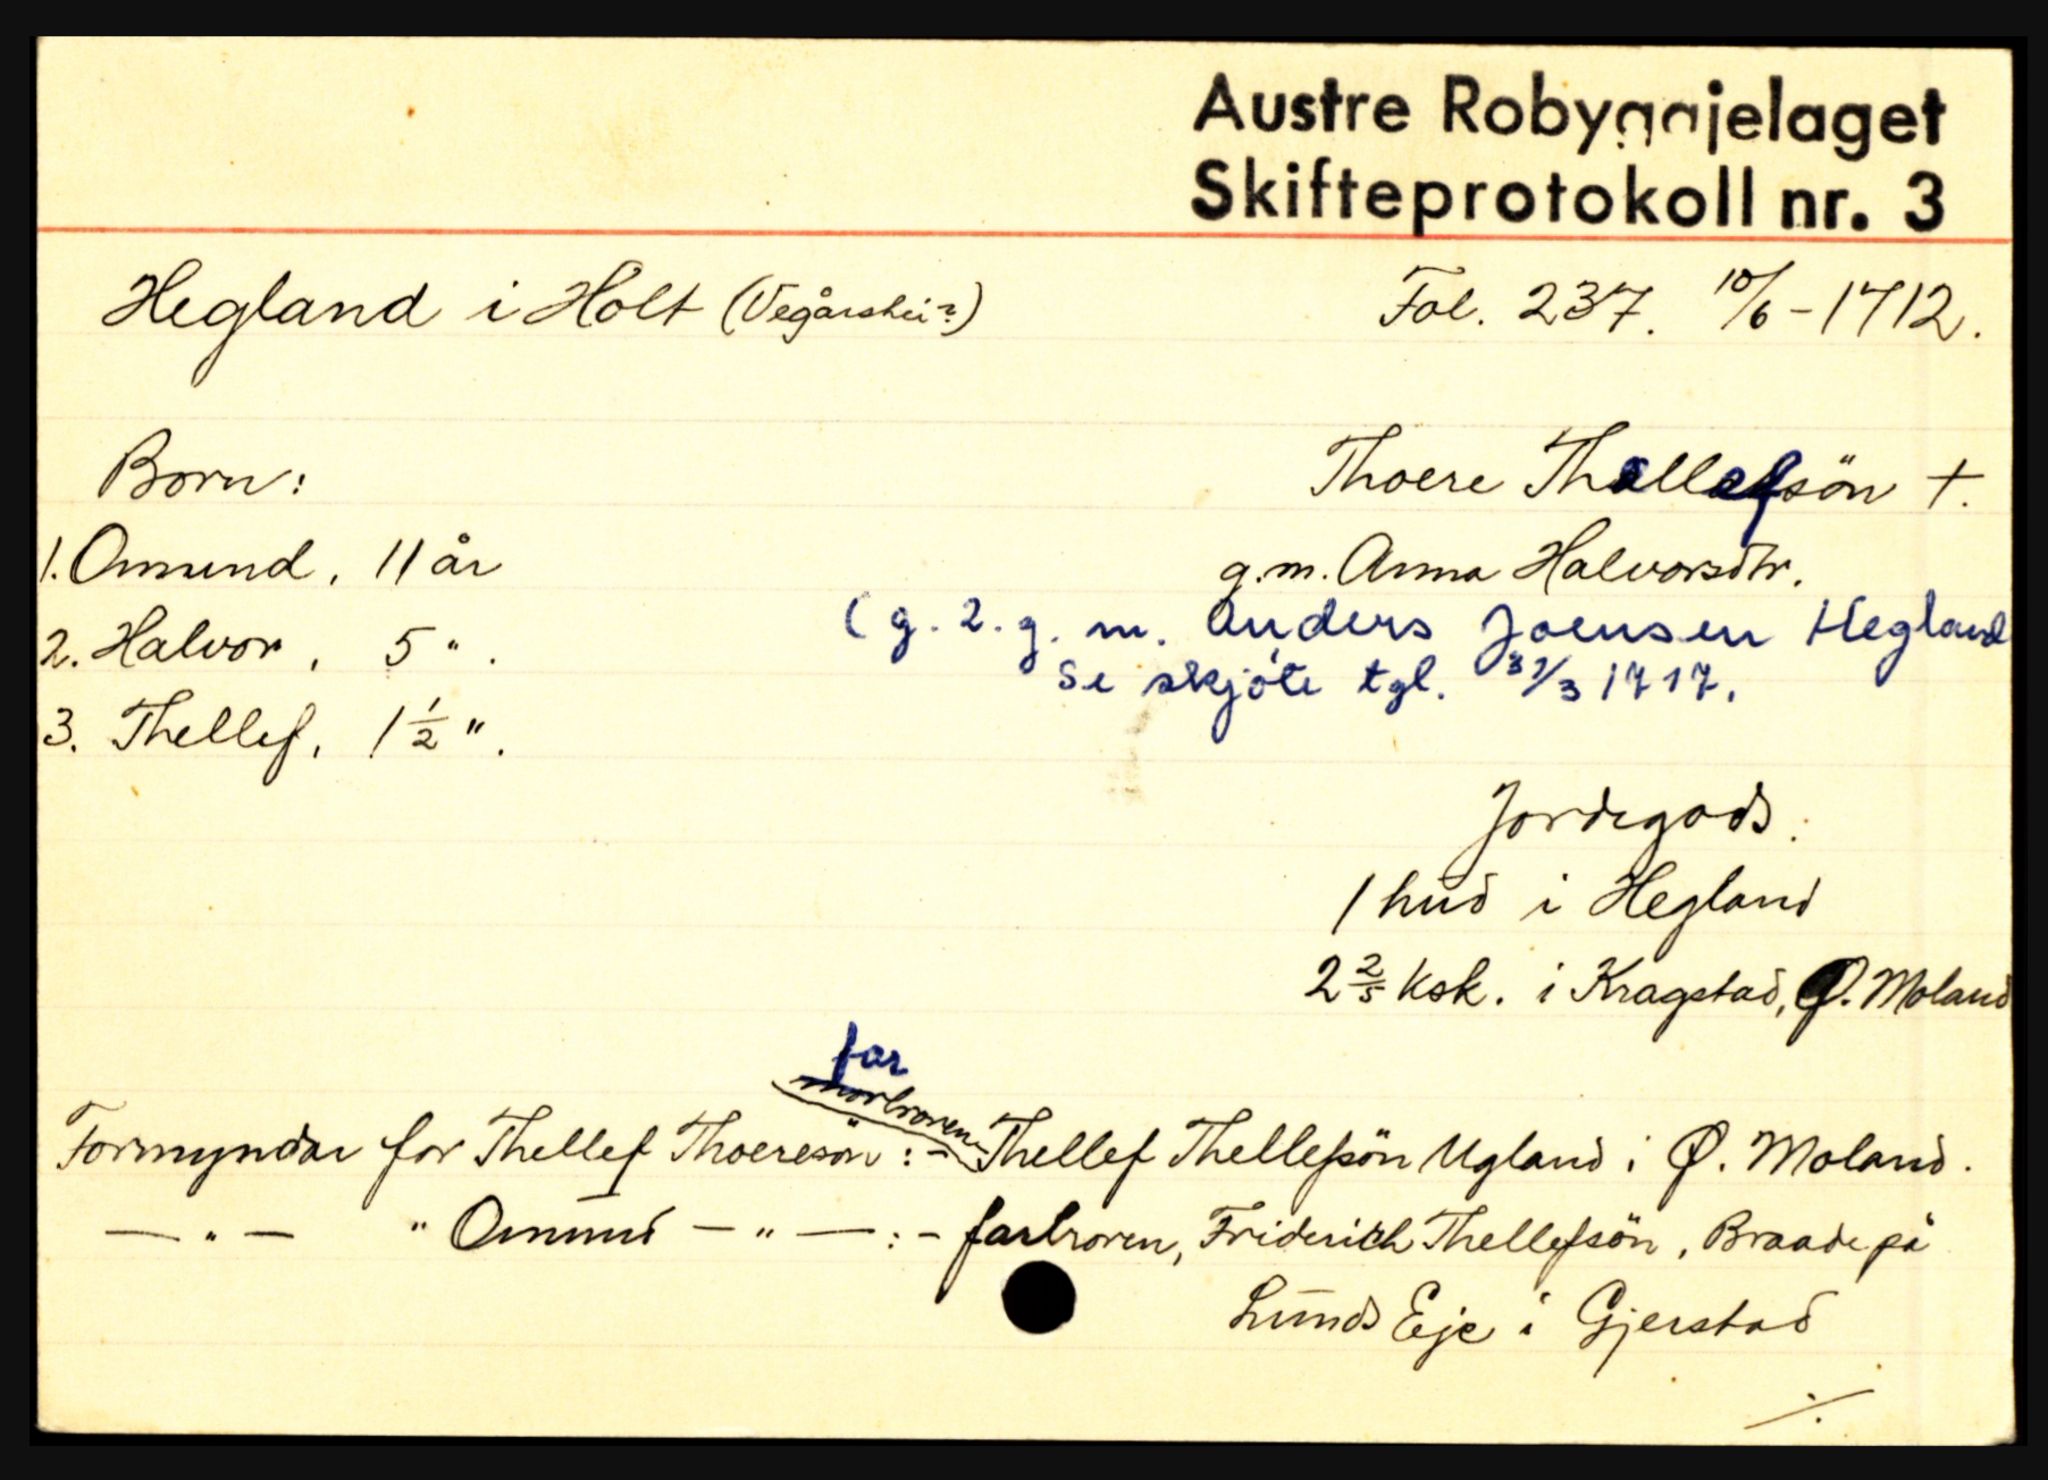 Austre Robyggjelaget
Skifteprotokoll nr. 3
Hegland i Holt (Vegårshei?)
Fol. 237. 10/6 - 1712.
Born:
Thoere Thellefsön +.
1. Omund, 11 år
g.m. Anna Halvorsdtr.
2. Halvor, 5 " .
(g. 2. g. m. Anders Joensen Hegland
Se skjöte tgl. /3 1717.
3. Thellef, 1 1/2 " .
Jordegods:
1 hud i Hegland
2 2/5 ksk. i Kragstad, Ø. Moland
far
morbroren
Formyndar for Thellef Thoeresön :- Thellef Thellefsön Ugland i Ø. Moland.
— " — " Omund — " — :- farbroren, Friderich Thellefsön, Braade på
Lunds Eje i Gjerstad
./.